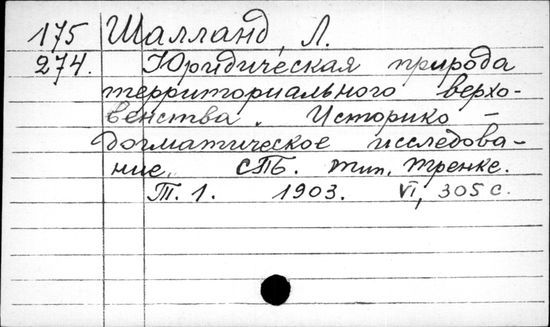 175 Шалланд, Л.
274. Юридическая природа
территориального верхо-
венства. Историко -
догматическое исследова-
ние. СПБ. тип. Тренке.
Т. 1. 1903. VI, 305 с.